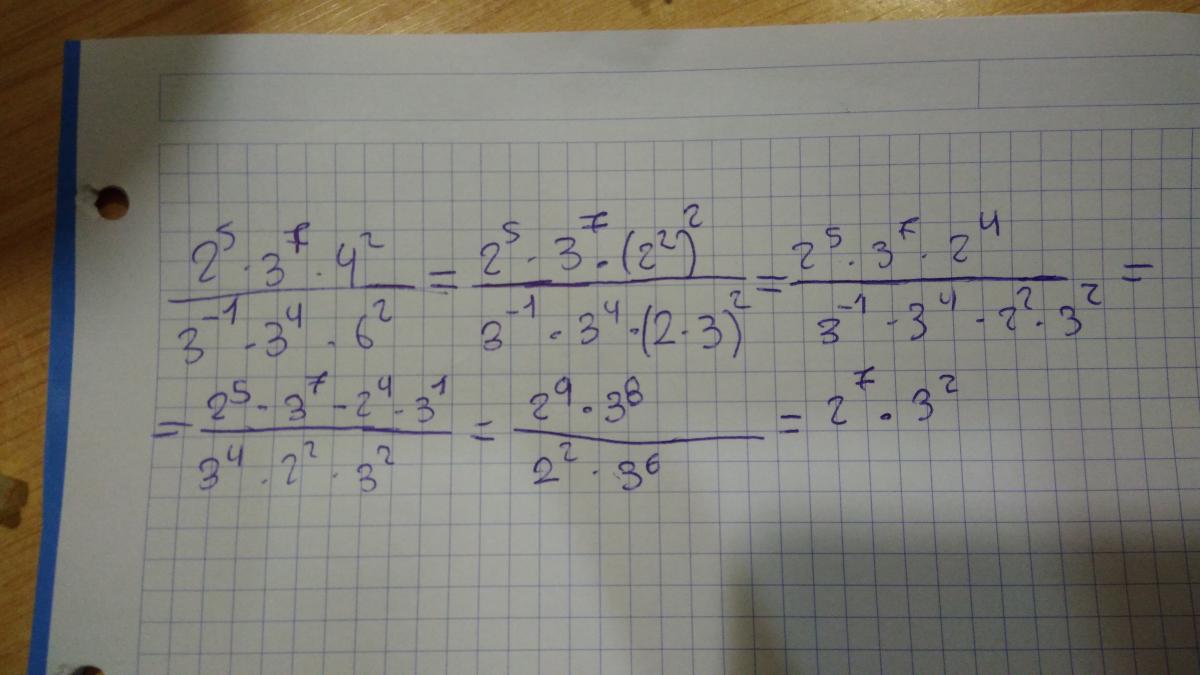 2⁵ · 3⁷ · 4² / 3⁻¹ · 3⁴ · 6² = 2⁵ · 3⁷ · (2²)² / 3⁻¹ · 3⁴ · (2 · 3)² = 2⁵ · 3⁷ · 2⁴ / 3⁻¹ · 3⁴ · 2² · 3² =
= 2⁵ · 3⁷ · 2⁴ · 3¹ / 3⁴ · 2² · 3² = 2⁹ · 3⁸ / 2² · 3⁶ = 2⁷ · 3²